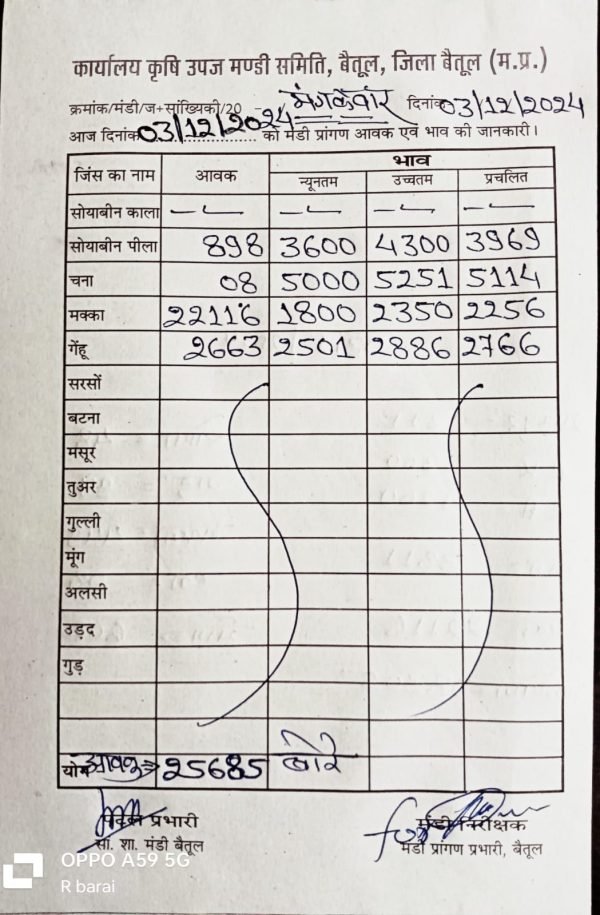 कार्यालय कृषि उपज मण्डी समिति, बैतूल, जिला बैतूल (म.प्र.)
क्रमांक/मंडी/ज+सांख्यिकी/20 - मंगलवार दिनांक 03/12/2024
आज दिनांक 03/12/2024 को मंडी प्रांगण आवक एवं भाव की जानकारी।
जिंस का नाम आवक भाव
न्यूनतम उच्चतम प्रचलित
सोयाबीन काला
सोयाबीन पीला 898 3600 4300 3969
चना 08 5000 5251 5114
मक्का 22116 1800 2350 2256
गेंहू 2663 2501 2886 2766
सरसों
बटना
मसूर
तुअर
गुल्ली
मूंग
अलसी
उड़द
गुड़
योग आवक 25685 बोरे
प्रभारी मंडी निरीक्षक
सां. शा. मंडी बैतूल मंडी प्रांगण प्रभारी, बैतूल
OPPO A59 5G
R barai